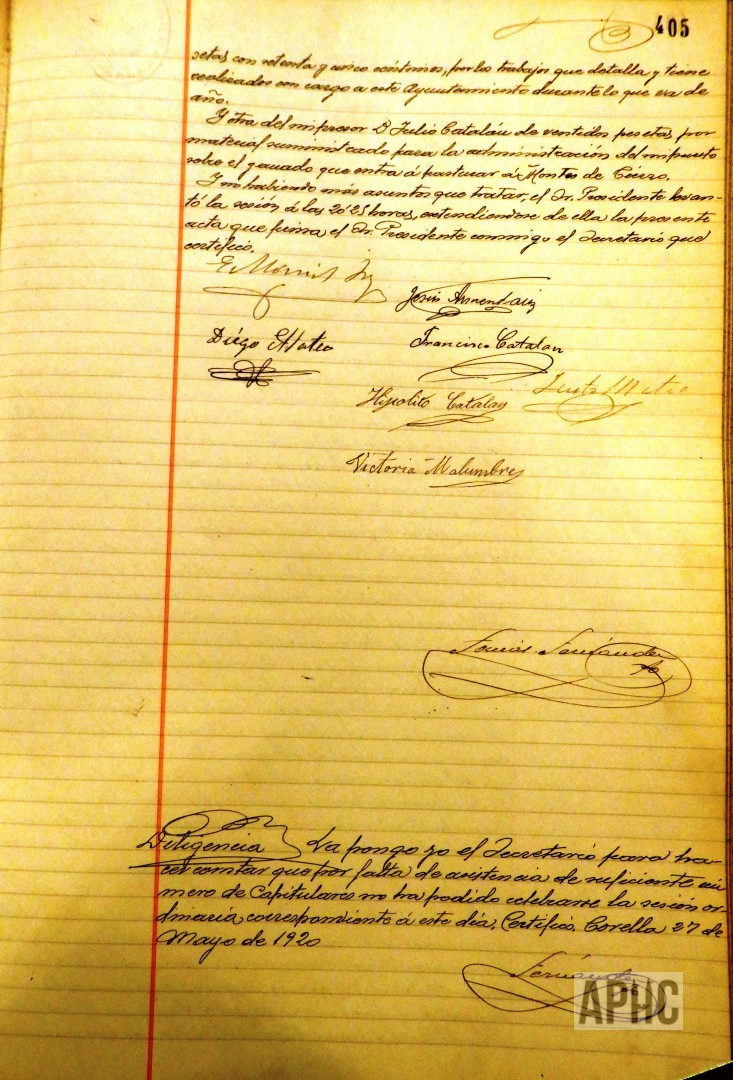 405
setas con setenta y cinco céntimos, por los trabajos que detalla y tiene
realizados con cargo a este Ayuntamiento durante lo que va de
año.
Y otra del impresor D Julio Catalán de ventidos pesetas por
material suministrado para la administración del impuesto
sobre el ganado que entra á pasturar á Montes de Cierzo.
Y no habiendo más asuntos que tratar, el Sr. Presidente levan-
tó la sesión á las 20'25 horas, extendiendose de ella la presente
acta que firma el Sr. Presidente conmigo el Secretario que
certifico.
Jesús Armendaiz
Diégo Mateo
Francisco Catalan
Hipolito Catalan
Justo Mateo
Victoria Malumbres
Tomás Fernández
Diligencia La pongo yo el Secretario para ha-
cer constar que por falta de asistencia de suficiente nú
mero de Capitulares no ha podido celebrarse la sesión or-
dinaria correspondiente á este día. Certifico. Corella 27 de
Mayo de 1920
Fernández
APHC